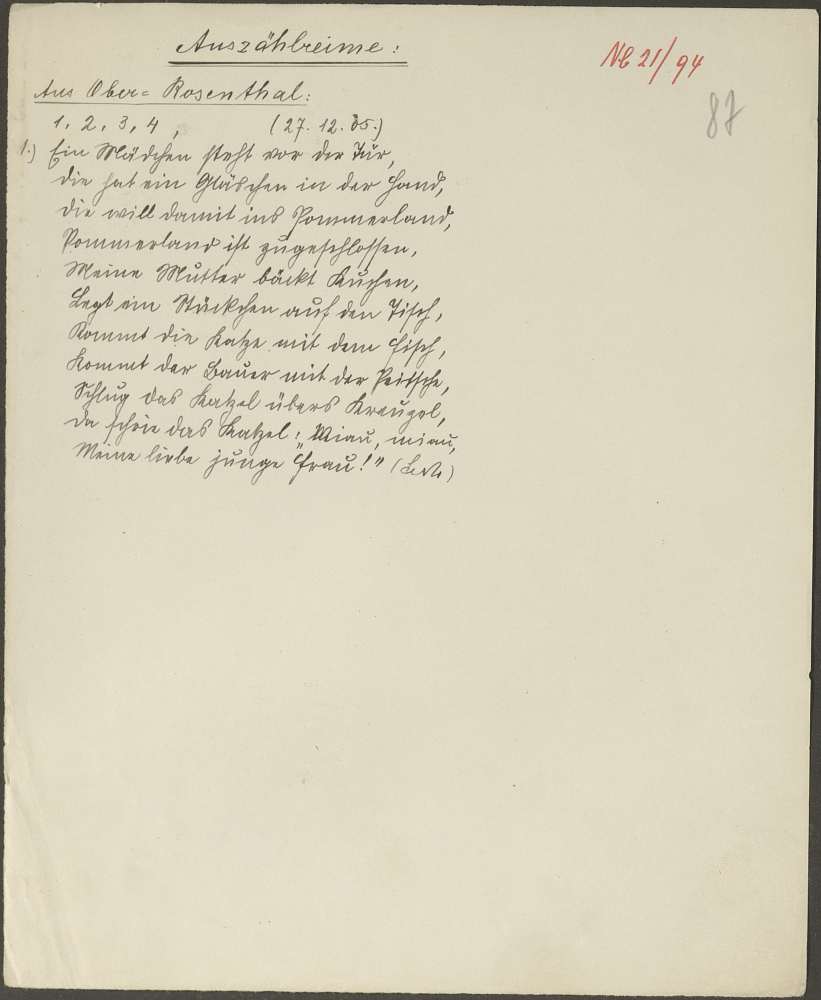 Auszählreime:
Nb 21/94
87
Aus Ober= Rosenthal:
1, 2, 3, 4, (27. 12. 05.)
1.) Ein Mädchen steht vor der Tür,
die hat ein Gläschen in der Hand,
die will damit ins Pommerland,
Pommerland ist zugeschlossen,
Meine Mutter bäckt Kuchen,
Legt ein Stückchen auf den Tisch,
Kommt die Katze mit dem Fisch,
Kommt der Bauer mit der Peitsche,
Schlug das Katzel übers Kreuzel,
Da schrie das Katzel: „Miau, miau,
Meine liebe junge Frau!"